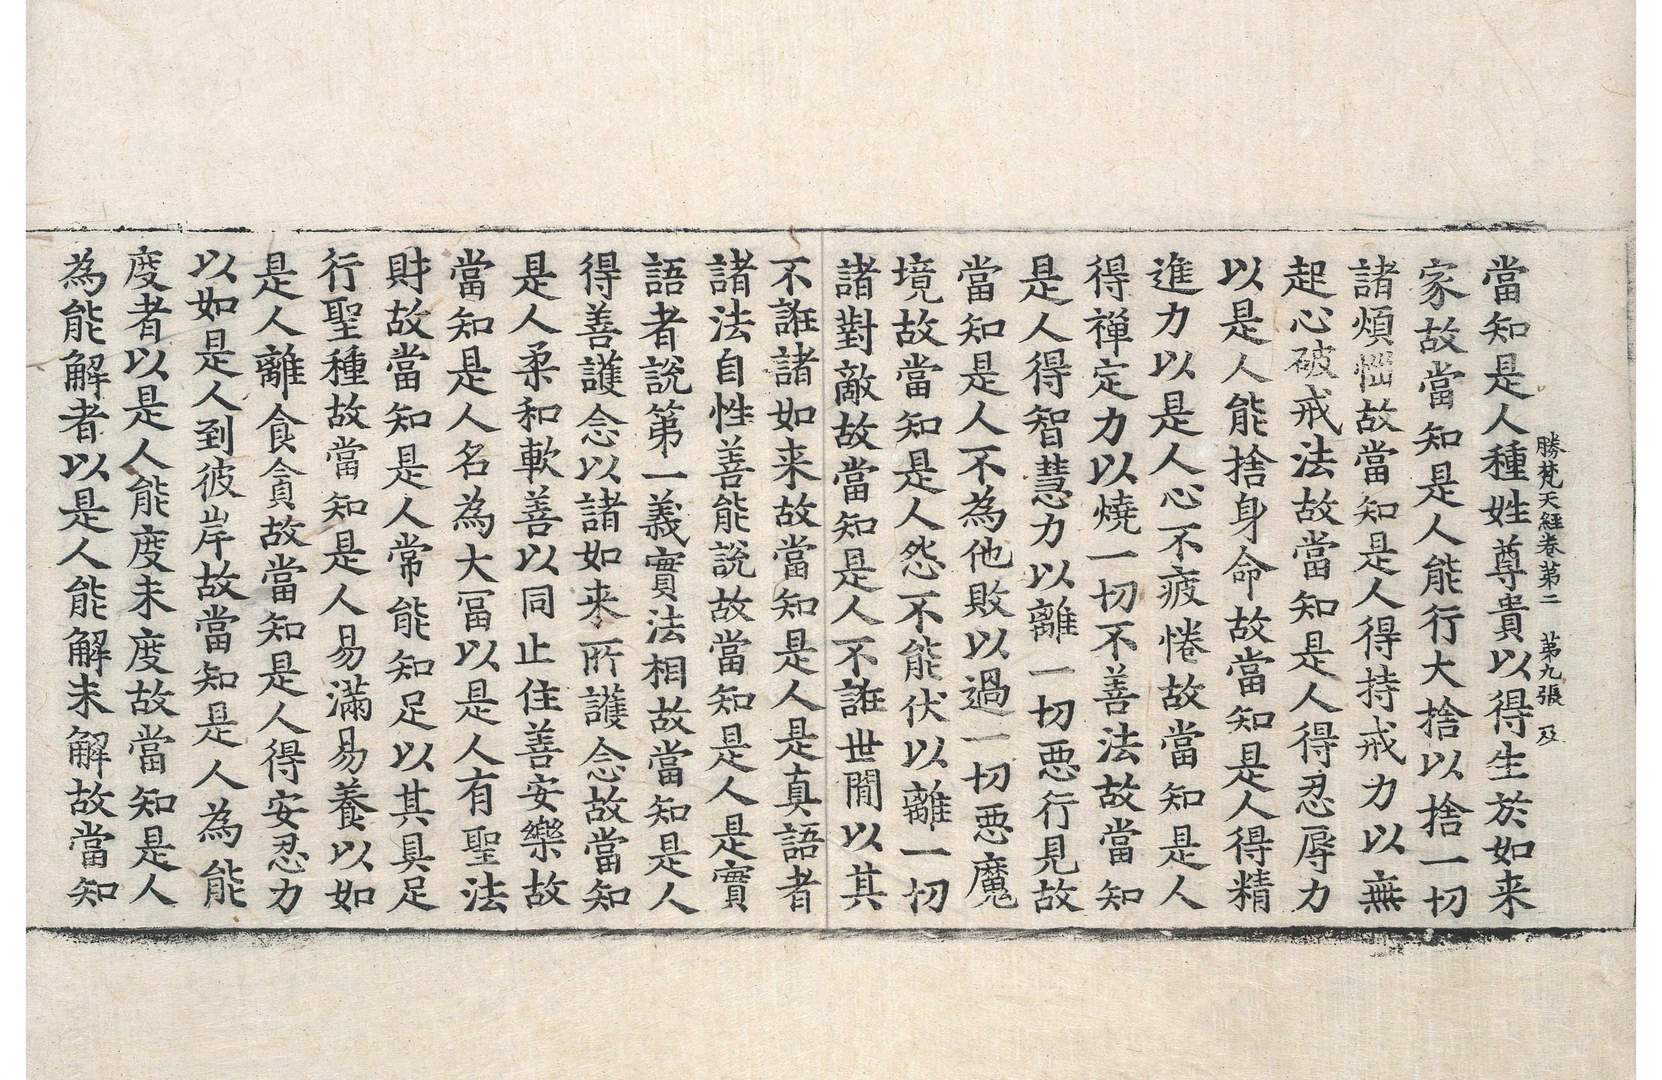 勝梵天経卷第二　第九張
當知是人種姓尊貴以得生於如来
家故當知是人能行大捨以捨一切
諸煩惱故當知是人得持戒力以無
起心破戒法故當知是人得忍辱力
以是人能捨身命故當知是人得精
進力以是人心不疲惓故當知是人
得禪定力以燒一切不善法故當知
是人得智慧力以離一切悪行見故
當知是人不為他敗以過一切悪魔
境故當知是人怨不能伏以離一切
諸對敵故當知是人不誑世間以其
不誑諸如来故當知是人是真語者
諸法自性善能說故當知是人是實
語者說第一義實法相故當知是人
得善護念以諸如来所護念故當知
是人柔和軟善以同止住善安樂故
當知是人名為大冨以是人有聖法
財故當知是人常能知足以其具足
行聖種故當知是人易滿易養以如
是人離食貪故當知是人得安忍力
以如是人到彼岸故當知是人為能
度者以是人能度未度故當知是人
為能解者以是人能解未解故當知